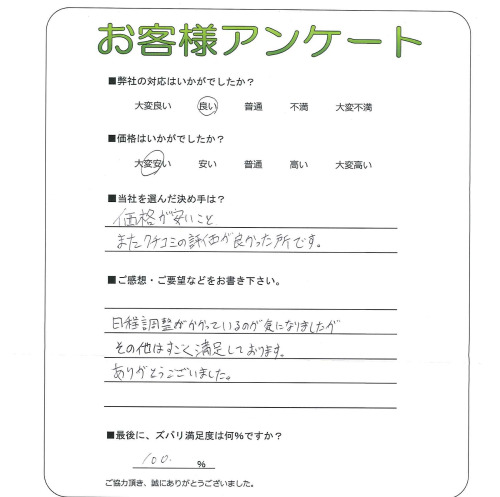 お客様アンケート
■弊社の対応はいかがでしたか？
大変良い 良い 普通 不満 大変不満
■価格はいかがでしたか？
大変安い 安い 普通 高い 大変高い
■当社を選んだ決め手は？
価格が安いこと
またクチコミの評価が良かった所です。
■ご感想・ご要望などをお書き下さい。
日程調整がかかっているのが気になりましたが
その他はすごく満足しております。
ありがとうございました。
■最後に、ズバリ満足度は何%ですか？
100. %
ご協力頂き、誠にありがとうございました。